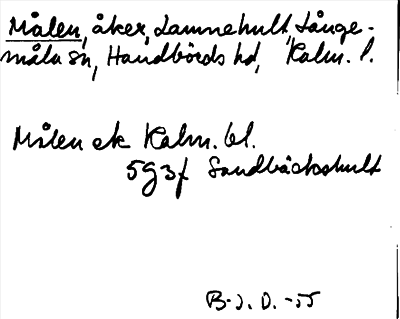 Målen, åker, Lamnehult, Långe-
måla sn, Handbörds hd, Kalm. l.
Målen ek Kalm. bl.
5G3f Sandbäckshult
B-J. D. -55